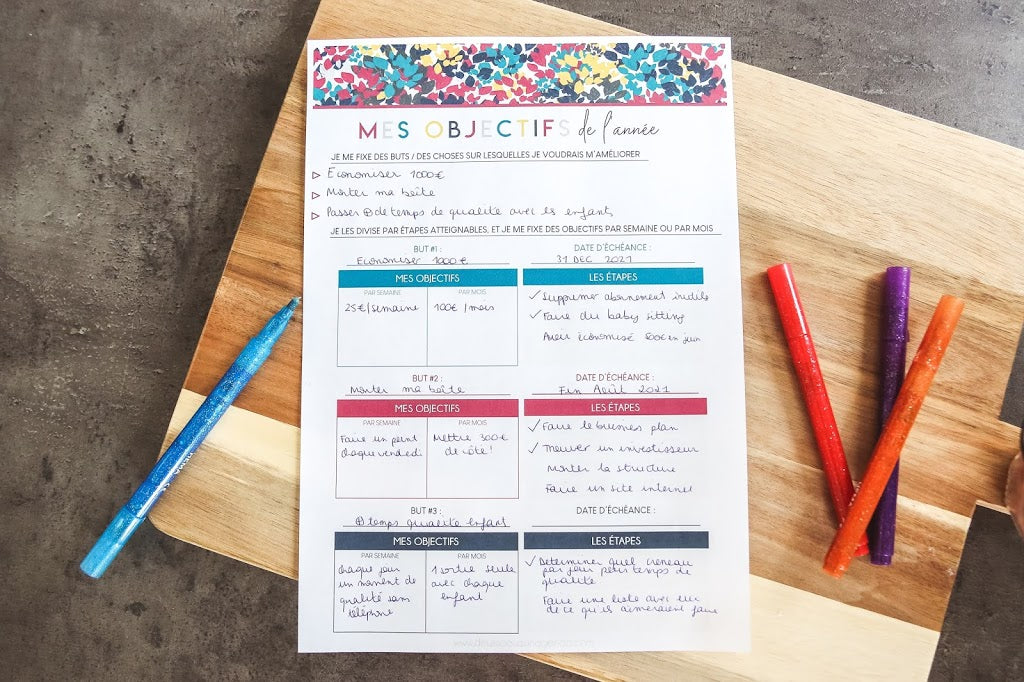 MES OBJECTIFS de l'année
JE ME FIXE DES BUTS / DES CHOSES SUR LESQUELLES JE VOUDRAIS M'AMÉLIORER
Economiser 1000€
Monter ma boîte
Passer ⊕ de temps de qualité avec les enfants
JE LES DIVISE PAR ÉTAPES ATTEIGNABLES, ET JE ME FIXE DES OBJECTIFS PAR SEMAINE OU PAR MOIS
BUT #1 :
Economiser 1000€
DATE D'ÉCHÉANCE :
31 DEC 2021
MES OBJECTIFS
PAR SEMAINE
25€/semaine
PAR MOIS
100€ /mois
LES ÉTAPES
✓ Supprimer abonnement inutile
✓ Faire du baby sitting
Avoir économisé 500€ en juin
BUT #2 :
Monter ma boîte
DATE D'ÉCHÉANCE :
Fin Août 2021
MES OBJECTIFS
PAR SEMAINE
Faire un point
chaque vendredi
PAR MOIS
Mettre 300€
de côté !
LES ÉTAPES
✓ Faire le business plan
✓ Trouver un investisseur
Monter la structure
Faire un site internet
BUT #3 :
⊕ temps qualité enfant
DATE D'ÉCHÉANCE :
MES OBJECTIFS
PAR SEMAINE
chaque jour
un moment de
qualité sans
téléphone
PAR MOIS
1 sortie seule
avec chaque
enfant
LES ÉTAPES
✓ Determiner quel creneau
par jour petit temps de
qualité
Faire une liste avec eux
de ce qu'ils aimeraient faire